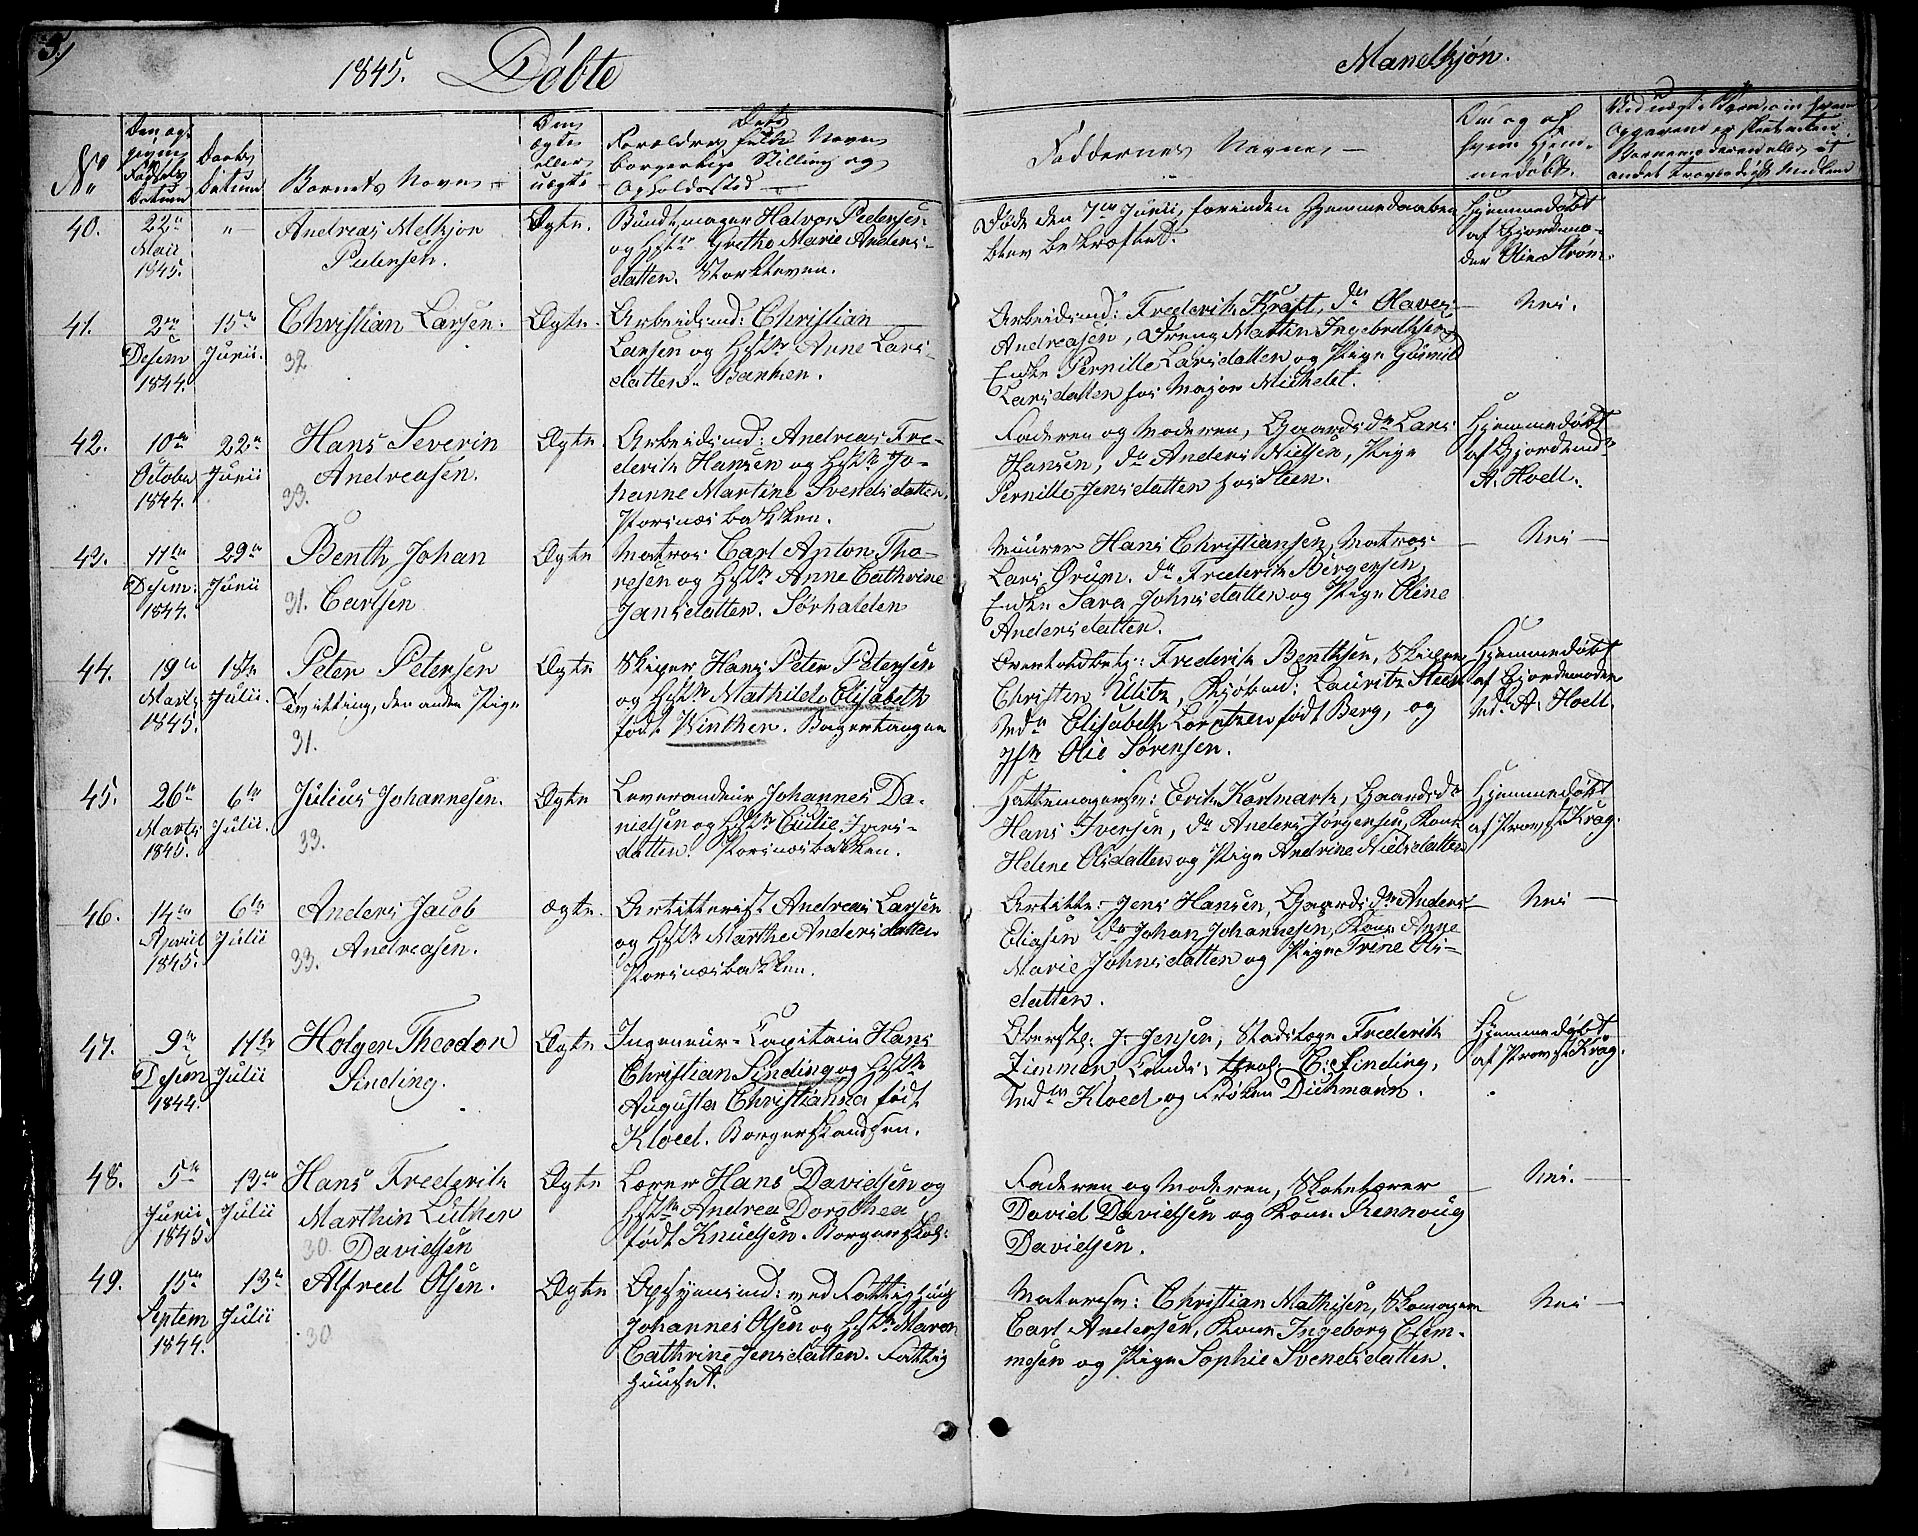 5.
1845. Døbte
Mandkjøn.
No
Den op-
givne
Fødsels
Datum
Daabs
Datum
Barnets Navn
Om
ægte
eller
uægte
Dets
Forældres fulde Navn
borgerlige Stilling og
Opholdssted
Faddernes Navne
Om og af
hvem hjem-
medøbt.
40.
22de
Maii
1845.
Andreas Melkjor
Pedersen.
Ægte.
Bundtmager Halvor Pedersen
og Hstr Grethe Marie Anders-
datter.
Døde den 7de Junii, forinden Hjemmedaaben
blev bekræftet.
Hjemmedøbt
af Gjordemo-
der Olie Strøm.
41.
2den
Desem
1844.
15de
Junii.
Christian Larsen.
32.
Ægte.
Arbeidsmd: Christian
Larsen og Hstr Anne Lars-
datter. Banken.
Arbeidsmd: Frederik Kraft, do Olaves
Andreasen, Dreng Martin Ingebrethsen
Enke Pernille Larsdatter og Pige Gunild
Larsdatter hos Major Michelet.
Nei.
42.
10de
October
1844.
22de
Junii
Hans Severin
Andreasen.
33.
Ægte.
Arbeidsmd: Andreas Fre-
derik Hansen og Hstr Jo-
hanne Martine Svendsdatter.
Porsnæsbakken.
Faderen og Moderen, Gaardsdr Lars
Hansen, do Anders Nielsen, Pige
Pernille Jensdatter hos Steen.
Hjemmedøbt
af Gjordemdr
A. Hoell.
43.
11te
Desem.
1844.
29de
Junii
Benth Johan
31. Carlsen
Ægte
Matros Carl Anton Tho-
resen og Hstr Anne Cathrine
Jansdatter. Sørhalden
Muurer Hans Christiansen, Matros
Lars Ørum. do Frederik Børgersen,
Enke Sara Johnsdatter og Pige Oline
Andersdatter.
Nei
44.
19de
Marts
1845.
1ste
Julii.
Peter Petersen
Tvilling, den anden Pige
31.
Ægte
Skiper Hans Peter Petersen
og Hstr Mathilde Elisabeth
født Winther.
Overtoldbetj: Frederik Benthsen, Skiper
Christen Ulitz, Kjøbmd: Lauritz Steen
Md Elisabeth Lorentzen født Berg, og
Jfr Olie Sørensen.
Hjemmedøbt
af Gjordemoder
Md: A. Hoell.
45.
26de
Marts
1845.
6te
Julii.
Julius Johannesen.
33.
Ægte
Leverandeur Johannes Da-
nielsen og Hstr Ivers-
datter. Porsnæsbakken.
Hattemagersv: Erik Karlmark, Gaardsdr
Hans Iversen, do Anders Jørgensen, Kone
Helene Olsdatter og Pige Andrine Nielsdatter
Hjemmedøbt
af Provst Krag.
46.
14de
April
1845.
6te
Julii
Anders Jacob
33. Andreasen.
ægte.
Artillerist Andreas Larsen
og Hstr Marthe Andersdatter
Porsnæsbakken.
Artille: Jens Hansen, Gaardsdr Anders
Eliasen do Johan Johannesen, Kone Anne
Marie Johnsdatter og Pige Trine Ols-
datter.
Nei
47.
9de
Desem
1844.
11te
Julii
Holger Theodor
Sinding.
Ægte
Ingeneur-Capitain Hans
Christian Sinding og Hstr
Augusta Christianna født
Kloed. Borgerskandsen.
Oberstl: J. Jensen, Stadslæge Frederik
Zimmer, Cand: theol: E: Sinding,
Mdm Kloed og Frøken Dickmann.
Hjemmedøbt
af Provst Krag.
48.
5te
Junii
1845.
13de
Julii
Hans Frederik
Marthin Luther
30. Davidsen
Ægte
Lærer Hans Davidsen og
Hstr Andrea Dorothea
født Knudsen. Borgerskol:
Faderen og Moderen, Skolelærer
David Davidsen og Kone Rennoug
Davidsen.
Nei.
49.
15de
Septem
1844.
13de
Julii
Alfred Olsen.
30
Ægte
Opsynsmd: ved Fattighuus
Johannes Olsen og Hstr Maren
Cathrine Jensdatter. Fattig
Huuset.
Malersv: Christian Mathisen, Skomager
Carl Andersen, Kone Ingeborg Clem-
mesen og Pige Sophie Svendsdatter.
Nei